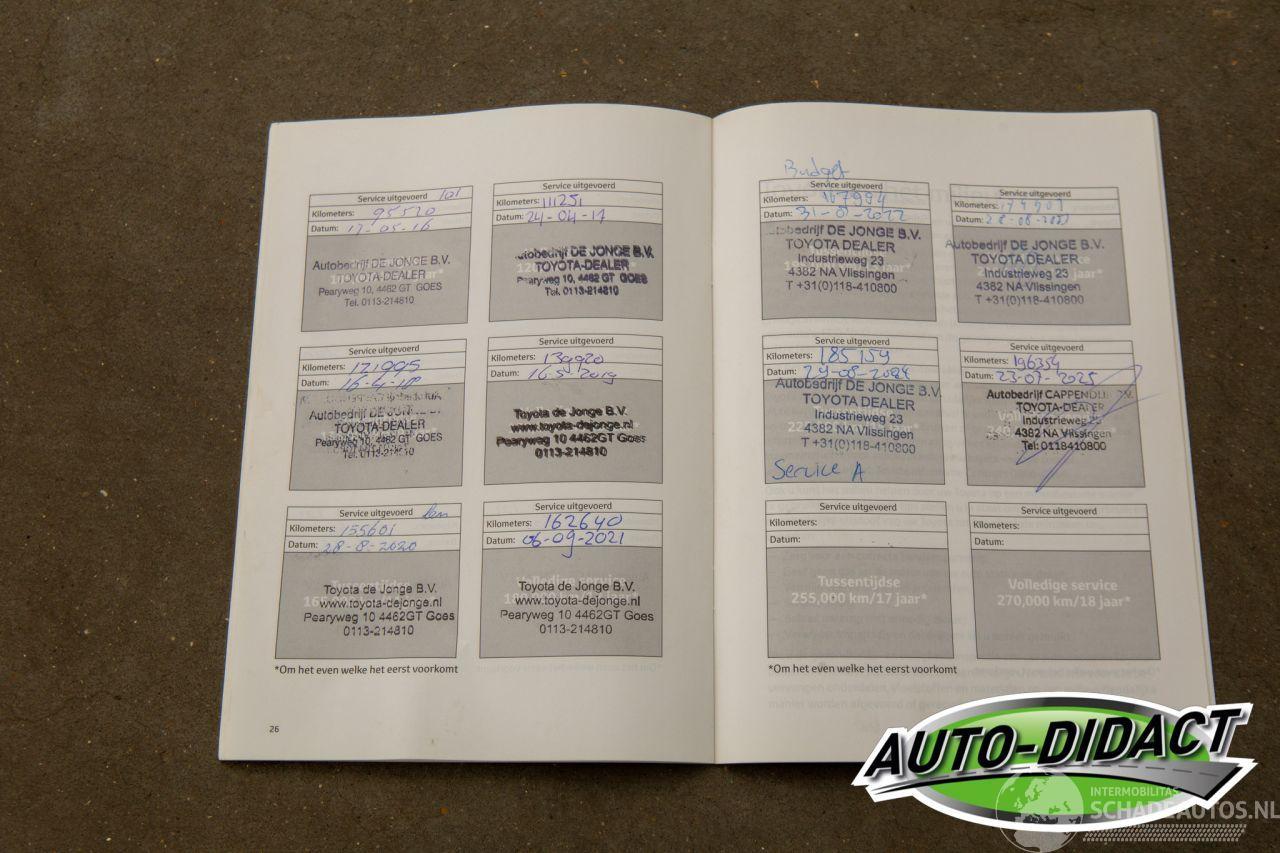 Service uitgevoerd 101
Kilometers: 95520
Datum: 17-05-16
Autobedrijf DE JONGE B.V.
TOYOTA-DEALER
Pearyweg 10, 4462 GT GOES
Tel. 0113-214810
Service uitgevoerd
Kilometers: 111251
Datum: 24-04-17
Autobedrijf DE JONGE B.V.
TOYOTA-DEALER
Pearyweg 10, 4462 GT GOES
Tel. 0113-214810
Service uitgevoerd
Kilometers: 121995
Datum: 16-4-18
Autobedrijf DE JONGE B.V.
TOYOTA-DEALER
Pearyweg 10, 4462 GT GOES
Tel. 0113-214810
Service uitgevoerd
Kilometers: 139920
Datum: 16-5-2019
Toyota de Jonge B.V.
www.toyota-dejonge.nl
Pearyweg 10 4462GT Goes
0113-214810
Service uitgevoerd
Kilometers: 155601
Datum: 28-8-2020
Tussentijdse
Toyota de Jonge B.V.
www.toyota-dejonge.nl
Pearyweg 10 4462GT Goes
0113-214810
Service uitgevoerd
Kilometers: 162640
Datum: 06-09-2021
Volledige service
Toyota de Jonge B.V.
www.toyota-dejonge.nl
Pearyweg 10 4462GT Goes
0113-214810
*Om het even welke het eerst voorkomt
26
Budget
Service uitgevoerd
Kilometers: 167994
Datum:
Autobedrijf DE JONGE B.V.
TOYOTA DEALER
Industrieweg 23
4382 NA Vlissingen
T +31(0)118-410800
Service uitgevoerd
Kilometers:
Datum:
Autobedrijf DE JONGE B.V.
TOYOTA DEALER
Industrieweg 23
4382 NA Vlissingen
T +31(0)118-410800
Service uitgevoerd
Kilometers: 185159
Datum: 29-08-2024
Autobedrijf DE JONGE B.V.
TOYOTA DEALER
Industrieweg 23
4382 NA Vlissingen
T +31(0)118-410800
Service A
Service uitgevoerd
Kilometers: 196354
Datum: 23-07-2025
Autobedrijf CAPPENDIJK B.V.
TOYOTA-DEALER
Industrieweg 23
4382 NA Vlissingen
Tel: 0118410800
Service uitgevoerd
Kilometers:
Datum:
Tussentijdse
255,000 km/17 jaar*
Service uitgevoerd
Kilometers:
Datum:
Volledige service
270,000 km/18 jaar*
*Om het even welke het eerst voorkomt
AUTO-DIDACT
INTERMOBILITAS
SCHADEAUTOS.NL